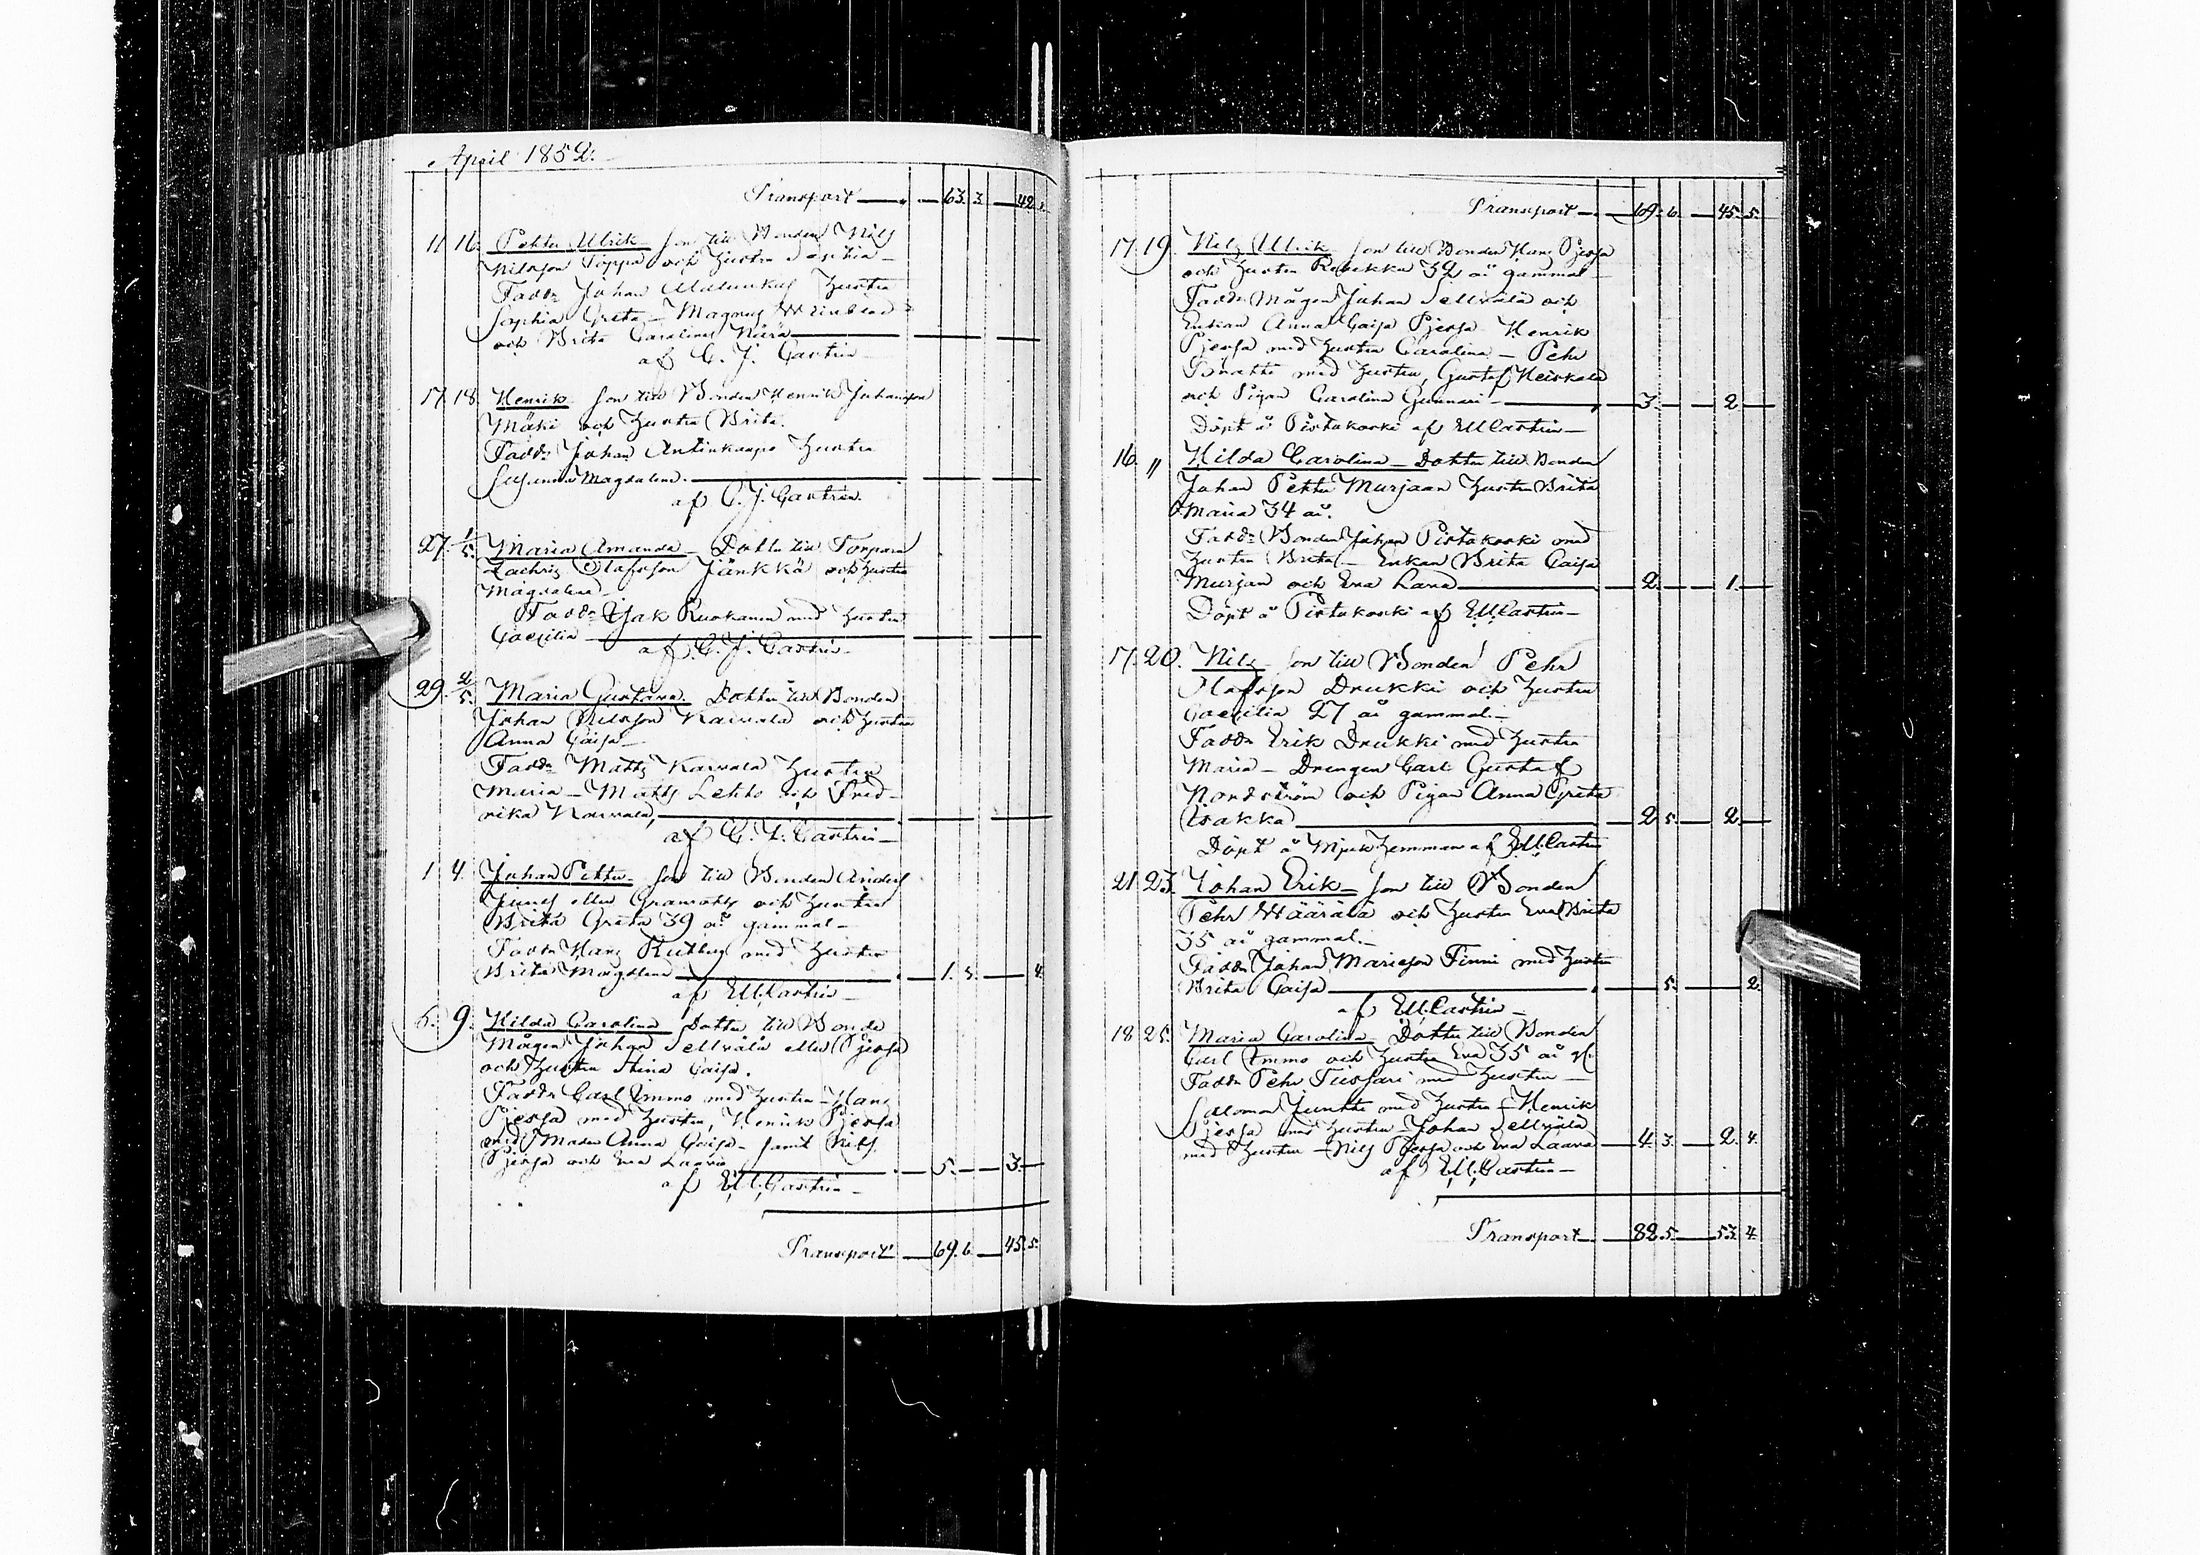 April 1852.
Transport 63. 3. 42.
11. 16. Petter Ulrik Son till Bonden Nils
Nilsson Poppa och Hustru
Fadd. Johan Hustru
Sophia Greta — Magnus
och Brita Carolina
af C. J. Castrén
17. 18. Henrik Son till Bonden Henrik Johansson
Mäki och Hustru Brita.
Fadd. Johan Antinkaapo Hustru
Susanna Magdalena.
af C. J. Castrén.
27. 1/5. Maria Amanda — Dotter till Torparen
Zachris Olofsson Jänkkä och Hustru
Magdalena —
Fadd. Isak Ruokanen med Hustru
Caecilia
af C. J. Castrén —
29. 2/5. Maria Gustava Dotter till Bonden
Johan Nilsson Kaiwala och Hustru
Anna Caisa —
Fadd. Matts Kaiwala Hustru
Maria — Matts Lehto och Fred-
rika Kaiwala,
af C. J. Castrén —
1. 4. Johan Petter — Son till Bonden Anders
Junes eller och Hustru
Brita Greta 39 år gammal —
Fadd. Hans med Hustru
Brita Magdalena 1. 5. 4.
af E.U. Castrén —
5. 9. Hilda Carolina Dotter till Bonde
Mågen Johan Sellwälä eller Pjesja
och Hustru Stina Caisa.
Fadd. Carl Immo med Hustru — Hans
Pjesja med Hustru, Henrik Pjesja
med Maria Anna Caisa — samt Nils
Pjesja och Eva Laawa 5. 3.
af E.U. Castrén —
Transport 69. 6. 45. 5.
Transport 69. 6. 45. 5.
17. 19. Nils Ulrik Son till Bonden Hans Pjesja
och Hustru Rebekka 32 år gammal
Fadd. Mågen Johan Sellwälä och
Enkan Anna Caisa Pjesja Henrik
Pjesja med Hustru Carolina — Pehr
med Hustru, Gustaf Heiskala
och Pigan Carolina Gunnari 3. 2.
Döpt å Pirtakoski af E.U. Castrén —
16. " Hilda Carolina — Dotter till Bonden
Johan Petter Murjaan Hustru Brita
Maria 34 år.
Fadd. Bonden Johan Pirtakoski med
Hustru Brita — Enkan Brita Caisa
Murjan och Eva Lara 2. 1.
Döpt å Pirtakoski af E.U. Castrén —
17. 20. Nils Son till Bonden Pehr
Olofsson Drukki och Hustru
Caecilia 27 år gammal. —
Fadd. Erik Drukki med Hustru
Maria — Drengen Carl Gustaf
Nordström och Pigan Anna Greta
Isakka 2. 5. 2.
Döpt å hemman af E.U. Castrén
21. 23. Johan Erik — Son till Bonden
Pehr Wäärälä och Hustru Eva Brita
35 år gammal. —
Fadd. Johan Mariason Finni med Hustru
Brita Caisa 5. 2.
af E.U. Castrén —
18. 25. Maria Carolina Dotter till Bonden
Carl Immo och Hustru Eva 35 år gl.
Fadd. Pehr med Hustru —
Salomon Juntti med Hustru — Henrik
Pjesja med Hustru — Johan Sellwälä
med Hustru — Nils Pjesja och Eva Laawa 4. 3. 2. 4.
af E.U. Castrén —
Transport 82. 5. 53. 4.